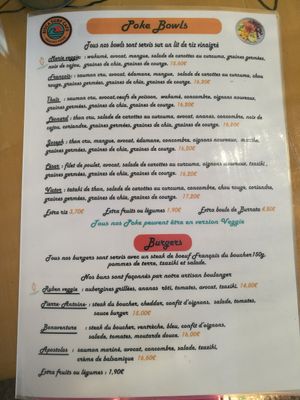 Poke Bowls
Tous nos bowls sont servis sur un lit de riz vinaigré
Marie veggie : wakamé, avocat, mangue, salade de carottes au curcuma, graines germées,
noix de cajou, graines de chia, graines de courge. 15,60€
François : saumon cru, avocat, édamame, mangue, salade de carottes au curcuma, chou
rouge, graines germées, graines de chia, graines de courge. 16,20€
Thaïs : saumon cru, avocat, oeufs de poisson, wakamé, concombre, oignons nouveaux,
graines germées, graines de chia, graines de courge. 16,20€
Léonard : thon cru, salade de carottes au curcuma, avocat, ananas, concombre, noix de
cajou, coriandre, graines germées, graines de chia, graines de courge. 16,20€
Joseph : thon cru, mangue, avocat, édamame, concombre, oignons nouveaux, menthe,
graines germées, graines de chia, graines de courge. 16,20€
César : filet de poulet, avocat, salade de carottes au curcuma, oignons nouveaux, tzaziki,
graines germées, graines de chia, graines de courge. 16,20€
Victor : tataki de thon, salade de carottes au curcuma, concombre, chou rouge, coriandre,
graines germées, graines de chia, graines de courge. 17,20€
Extra riz 3,70€ Extra fruits ou légumes 1,90€ Extra boule de Burrata 4,80€
Tous nos Poke peuvent être en version Veggie
Burgers
Tous nos burgers sont servis avec un steak de boeuf Français du Boucher 150g,
pommes de terre, tzaziki et salade.
Nos buns sont façonnés par notre artisan boulanger
Ruben veggie : aubergines grillées, ananas rôti, tomates, avocat, tzaziki, 14,80€
Pierre-Antoine : steak du boucher, cheddar, confit d'oignons, salade, tomates,
sauce burger 15,00€
Bonaventure : steak du boucher, ventrèche, bleu, confit d'oignons,
salade, tomates, moutarde douce, 16,00€
Apostolos : saumon mariné, avocat, concombre, salade, tzaziki,
crème de balsamique 16,60€
Extra fruits ou légumes : 1,90€